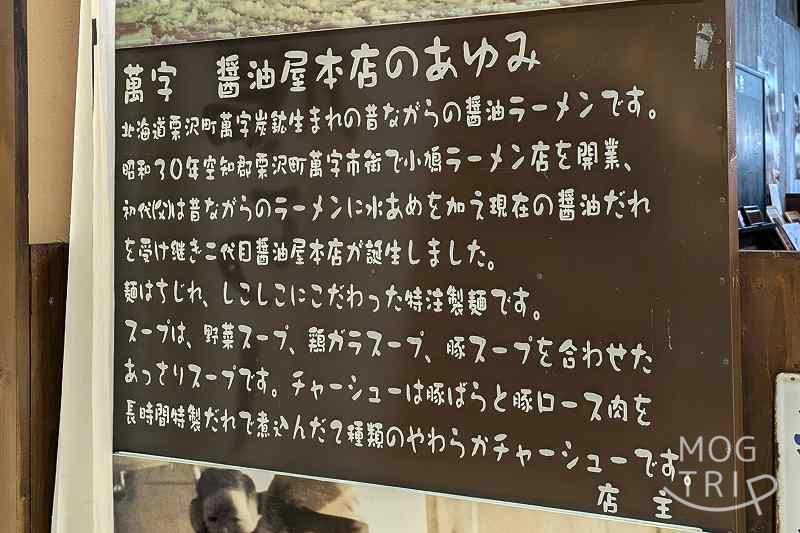 萬字 醤油屋本店のあゆみ
北海道栗沢町萬字炭鉱生まれの昔ながらの醤油ラーメンです。
昭和30年空知郡栗沢町萬字市街で小鳩ラーメン店を開業、
初代(父)は昔ながらのラーメンに水あめを加え現在の醤油だれ
を受け継き二代目醤油屋本店が誕生しました。
麺はちじれ、しこしこにこだわった特注製麺です。
スープは、野菜スープ、鶏ガラスープ、豚スープを合わせた
あっさりスープです。チャーシューは豚ばらと豚ロース肉を
長時間特製だれで煮込んだ2種類のやわらかチャーシューです。
店 主
MOG
TRIP